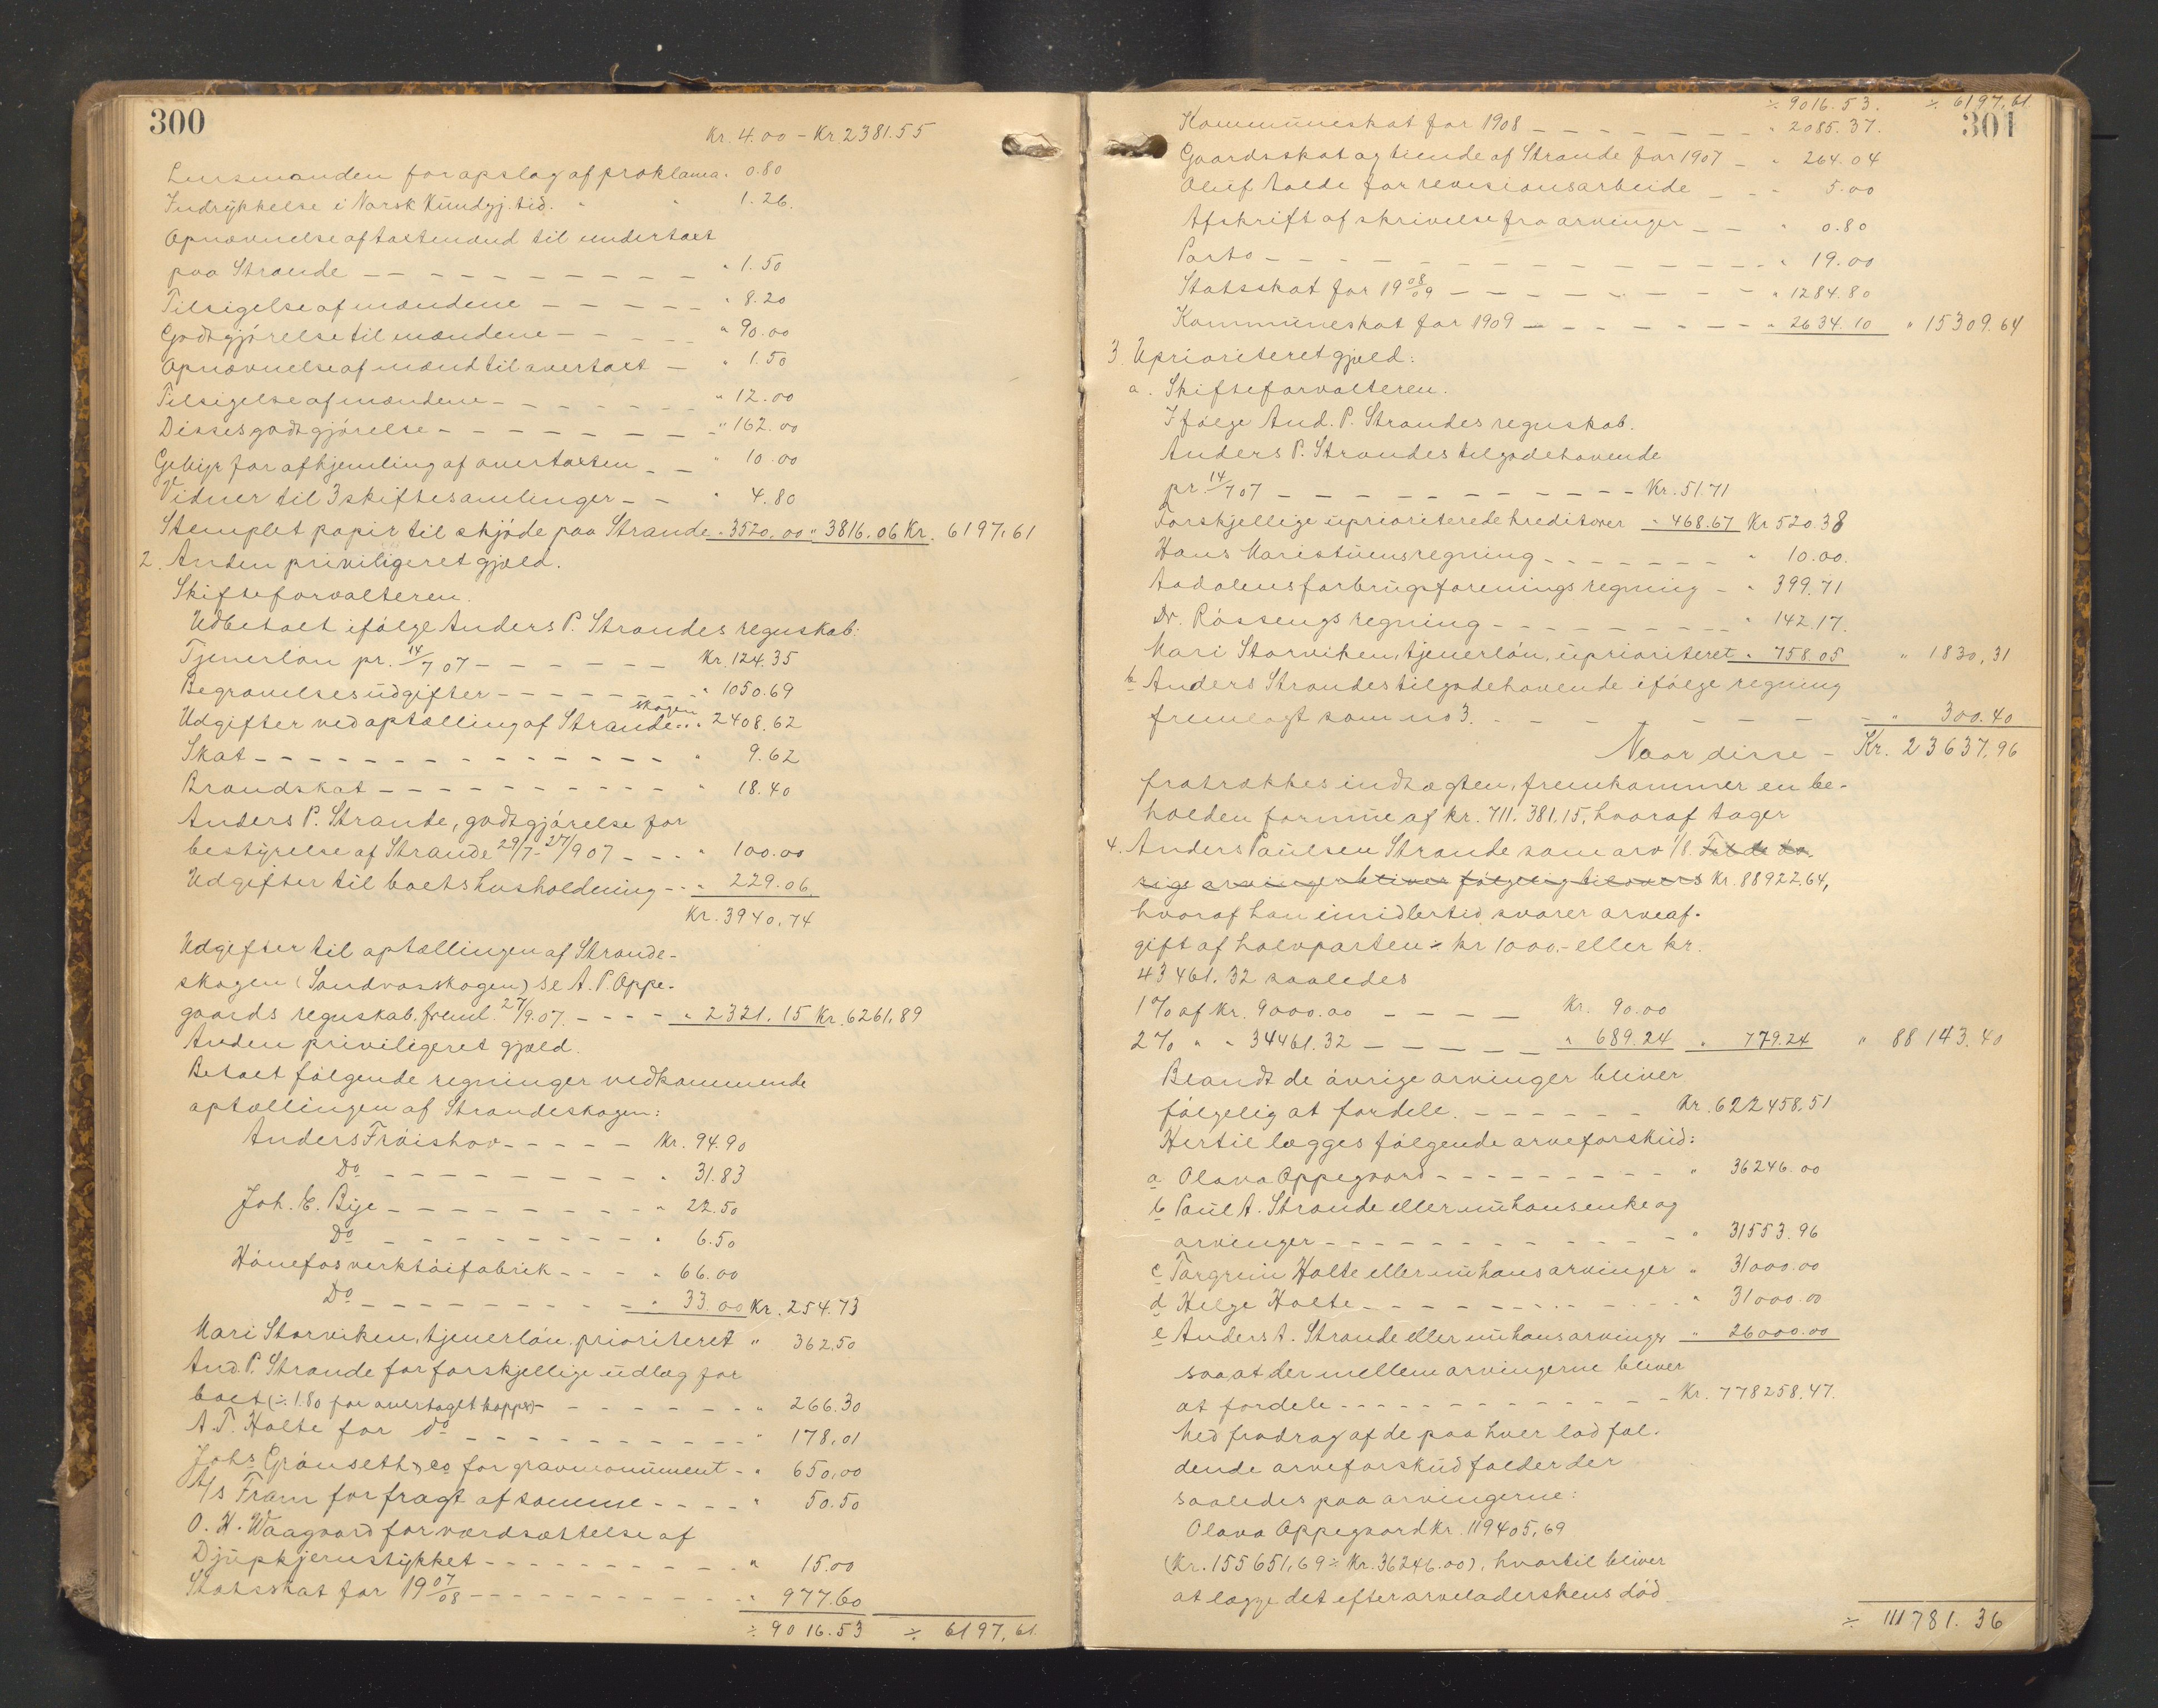 300
Kr. 4.00 - Kr 2381.55
Lensmanden for opslag af proklama " 0.80
Indrykkelse i Norsk Kundgj. tid. " " 1.26.
Opnævnelse af taktmænd til undertaxt
paa Strande - - - " 1.50
Tilsigelse af mændene - - - " 8.20
Godtgjörelse til mændene - - - " 90.00
Opnævnelse af mænd til overtaxt - " 1.50
Tilsigelse af mændene - - - " 12.00
Disses godtgjörelse - - - " 162.00
Gebyr for afhjemling af overtaxten - - " 10.00
Vidner til 3 skiftesamlinger - - " 4.80
Stemplet papir til skjöde paa Strande " 3520.00 " 3816.06 Kr. 6197.61
2. Anden priviligeret gjæld.
Skifteforvalteren.
Udbetalt ifölge Anders P. Strandes regnskab:
Tjenerlön pr. 14/7 07 - - - Kr. 124.35
Begravelsesudgifter - - - " 1050.69
Udgifter ved optælling af Strandeskogen " 2408.62
Skat - - - " 9.62
Brandskat - - - " 18.40
Anders P. Strande, godtgjörelse for
bestyrelse af Strande 29/7 - 27/9 07 - - - " 100.00
Udgifter til boets husholdning - - " 229.06.
Kr. 3940.74
Udgifter til optællingen af Strande-
skogen (Sandvasskogen) se A. P. Oppe-
gaards regnskab, freml. 27/9.07. - - - " 2321.15 Kr. 6261.89
Anden priviligeret gjæld.
Betalt fölgende regninger vedkommende
optællingen af Strandeskogen:
Anders Fröishov - - - Kr. 94.90
Do - - - " 31.83
Joh. E. Bye - - - " 22.50
Do - - - " 6.50
Hönefos verktöifabrik - - - " 66.00
Do - - - " 33.00 Kr. 254.73
Mari Storviken, tjenerlön, prioriteret " 362.50
And. P. Strande for forskjellige udlæg for
boet (÷ 1.80 for overtaget kopper) - - - " 266.30
A. T. Holte for do - - - " 178.01
Johs Grönseth & co for gravmonument - " 650.00
A/s Fram for fragt af samme - - - " 50.50
O. H. Waagaard for værdsættelse af
Djupkjernstykket - - - " 15.00
Statsskat for 1907/08 - - - " 977.60
÷ 9016.53 ÷ 6197.61
301
÷ 9016.53. ÷ 6197.61
Kommuneskat for 1908 - - - " 2085.37.
Gaardsskat og tiende af Strande for 1907 - " 264.04
Oluf Tolde for revisionsarbeide - - " 5.00
Afskrift af skrivelse fra arvinger - - " 0.80
Porto - - - " 19.00
Statsskat for 1908/09 - - - " 1284.80
Kommuneskat for 1909 - - - " 2634.10 " 15309.64
3. Uprioriteret gjæld:
a. Skifteforvalteren.
Ifölge And. P. Strandes regnskab.
Anders P. Strandes tilgodehavende
pr. 14/7 07 - - - Kr. 51.71
Forskjellige uprioriterede kreditorer " 468.67 Kr 520.38
Hans Maristuens regning - - - " 10.00.
Aadalens forbrugsforenings regning - " 399.71
Dr. Rössengs regning - - - " 142.17.
Mari Storviken, tjenerlön, uprioriteret " 758.05 " 1830.31
b Anders Strandes tilgodehavende ifölge regning
fremlagt som no 3. - - - " 300.40
Naar disse - Kr. 23637.96
fratrækkes indtægten, fremkommer en be-
holden formue af kr. 711.381.15, hvoraf tager
4. Anders Paulsen Strande som arv 1/8. Til de öv-
rige arvinger bliver fölgelig tilovers Kr. 88922.64,
hvoraf han imidlertid svarer arveaf-
gift af halvparten ÷ kr 1000.- eller kr.
43461.32 saaledes
1% af Kr. 9000.00 - - - Kr. 90.00
2% " " 34461.32 - - - " 689.24 " 779.24 " 88143.40
Blandt de övrige arvinger bliver
fölgelig at fordele. - - - Kr. 622458.51
Hertil lægges fölgende arveforskud:
a Olava Oppegaard - - - " 36246.00
b Paul A. Strande eller nu hans enke og
arvinger - - - " 31553.96
c Torgrim Holte eller nu hans arvinger " 31000.00
d Helge Holte - - - " 31000.00
e Anders A. Strande eller nu hans arvinger " 26000.00
saa at der mellem arvingerne bliver
at fordele - - - Kr. 778258.47.
Med fradrag af de paa hver lod fal-
dende arveforskud falder der
saaledes paa arvingerne:
Olava Oppegaard kr. 119405.69
(Kr. 155651.69 ÷ Kr. 36246.00), hvortil bliver
at lægge det efter arveladerskens död
÷ 111781.36